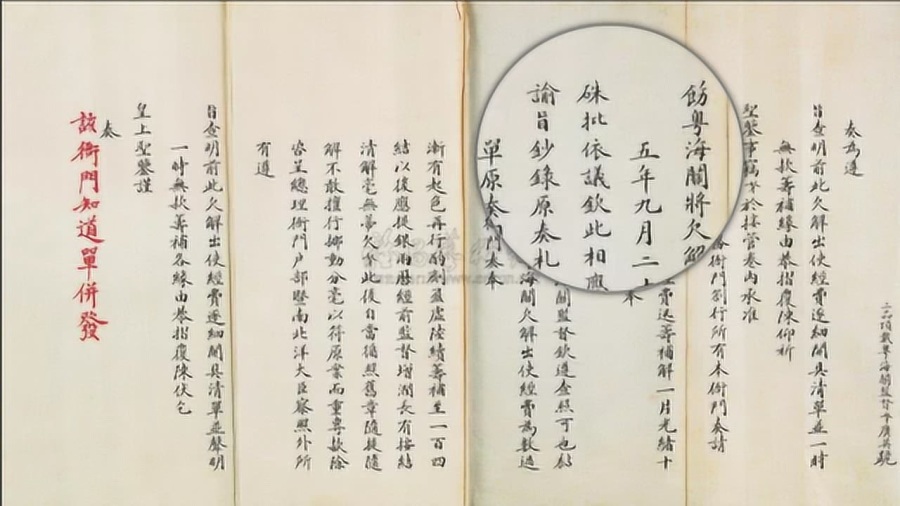 二品頂戴粵海關監督奴才廣英跪
奏為遵
旨查明前此欠解出使經費逐細開具清單並一時
無款籌補緣由恭摺復陳仰祈
聖鑒事竊奴才於接管卷內承准
務衙門劄行所有本衙門奏請
飭粵海關將欠解
經費迅籌補解一片光緒十
五年九月二十
奉
硃批依議欽此相應
諭旨鈔錄原奏札
關監督欽遵查照可也
單原奏
海關欠解出使經費為數過
漸有起色再行酌劑盈虛陸續籌補至一百四
結以後應提銀兩歷經前監督增潤長有按結
清解毫無蒂欠奴才此後自當循照舊章隨提隨
解不敢擅行挪動分毫以符原案而重專款除
咨呈總理衙門戶部暨南北洋大臣察照外所
有遵
旨查明前此欠解出使經費逐細開具清單並聲明
一時無款籌補各緣由恭摺復陳伏乞
皇上聖鑒謹
奏
該衙門知道單併發